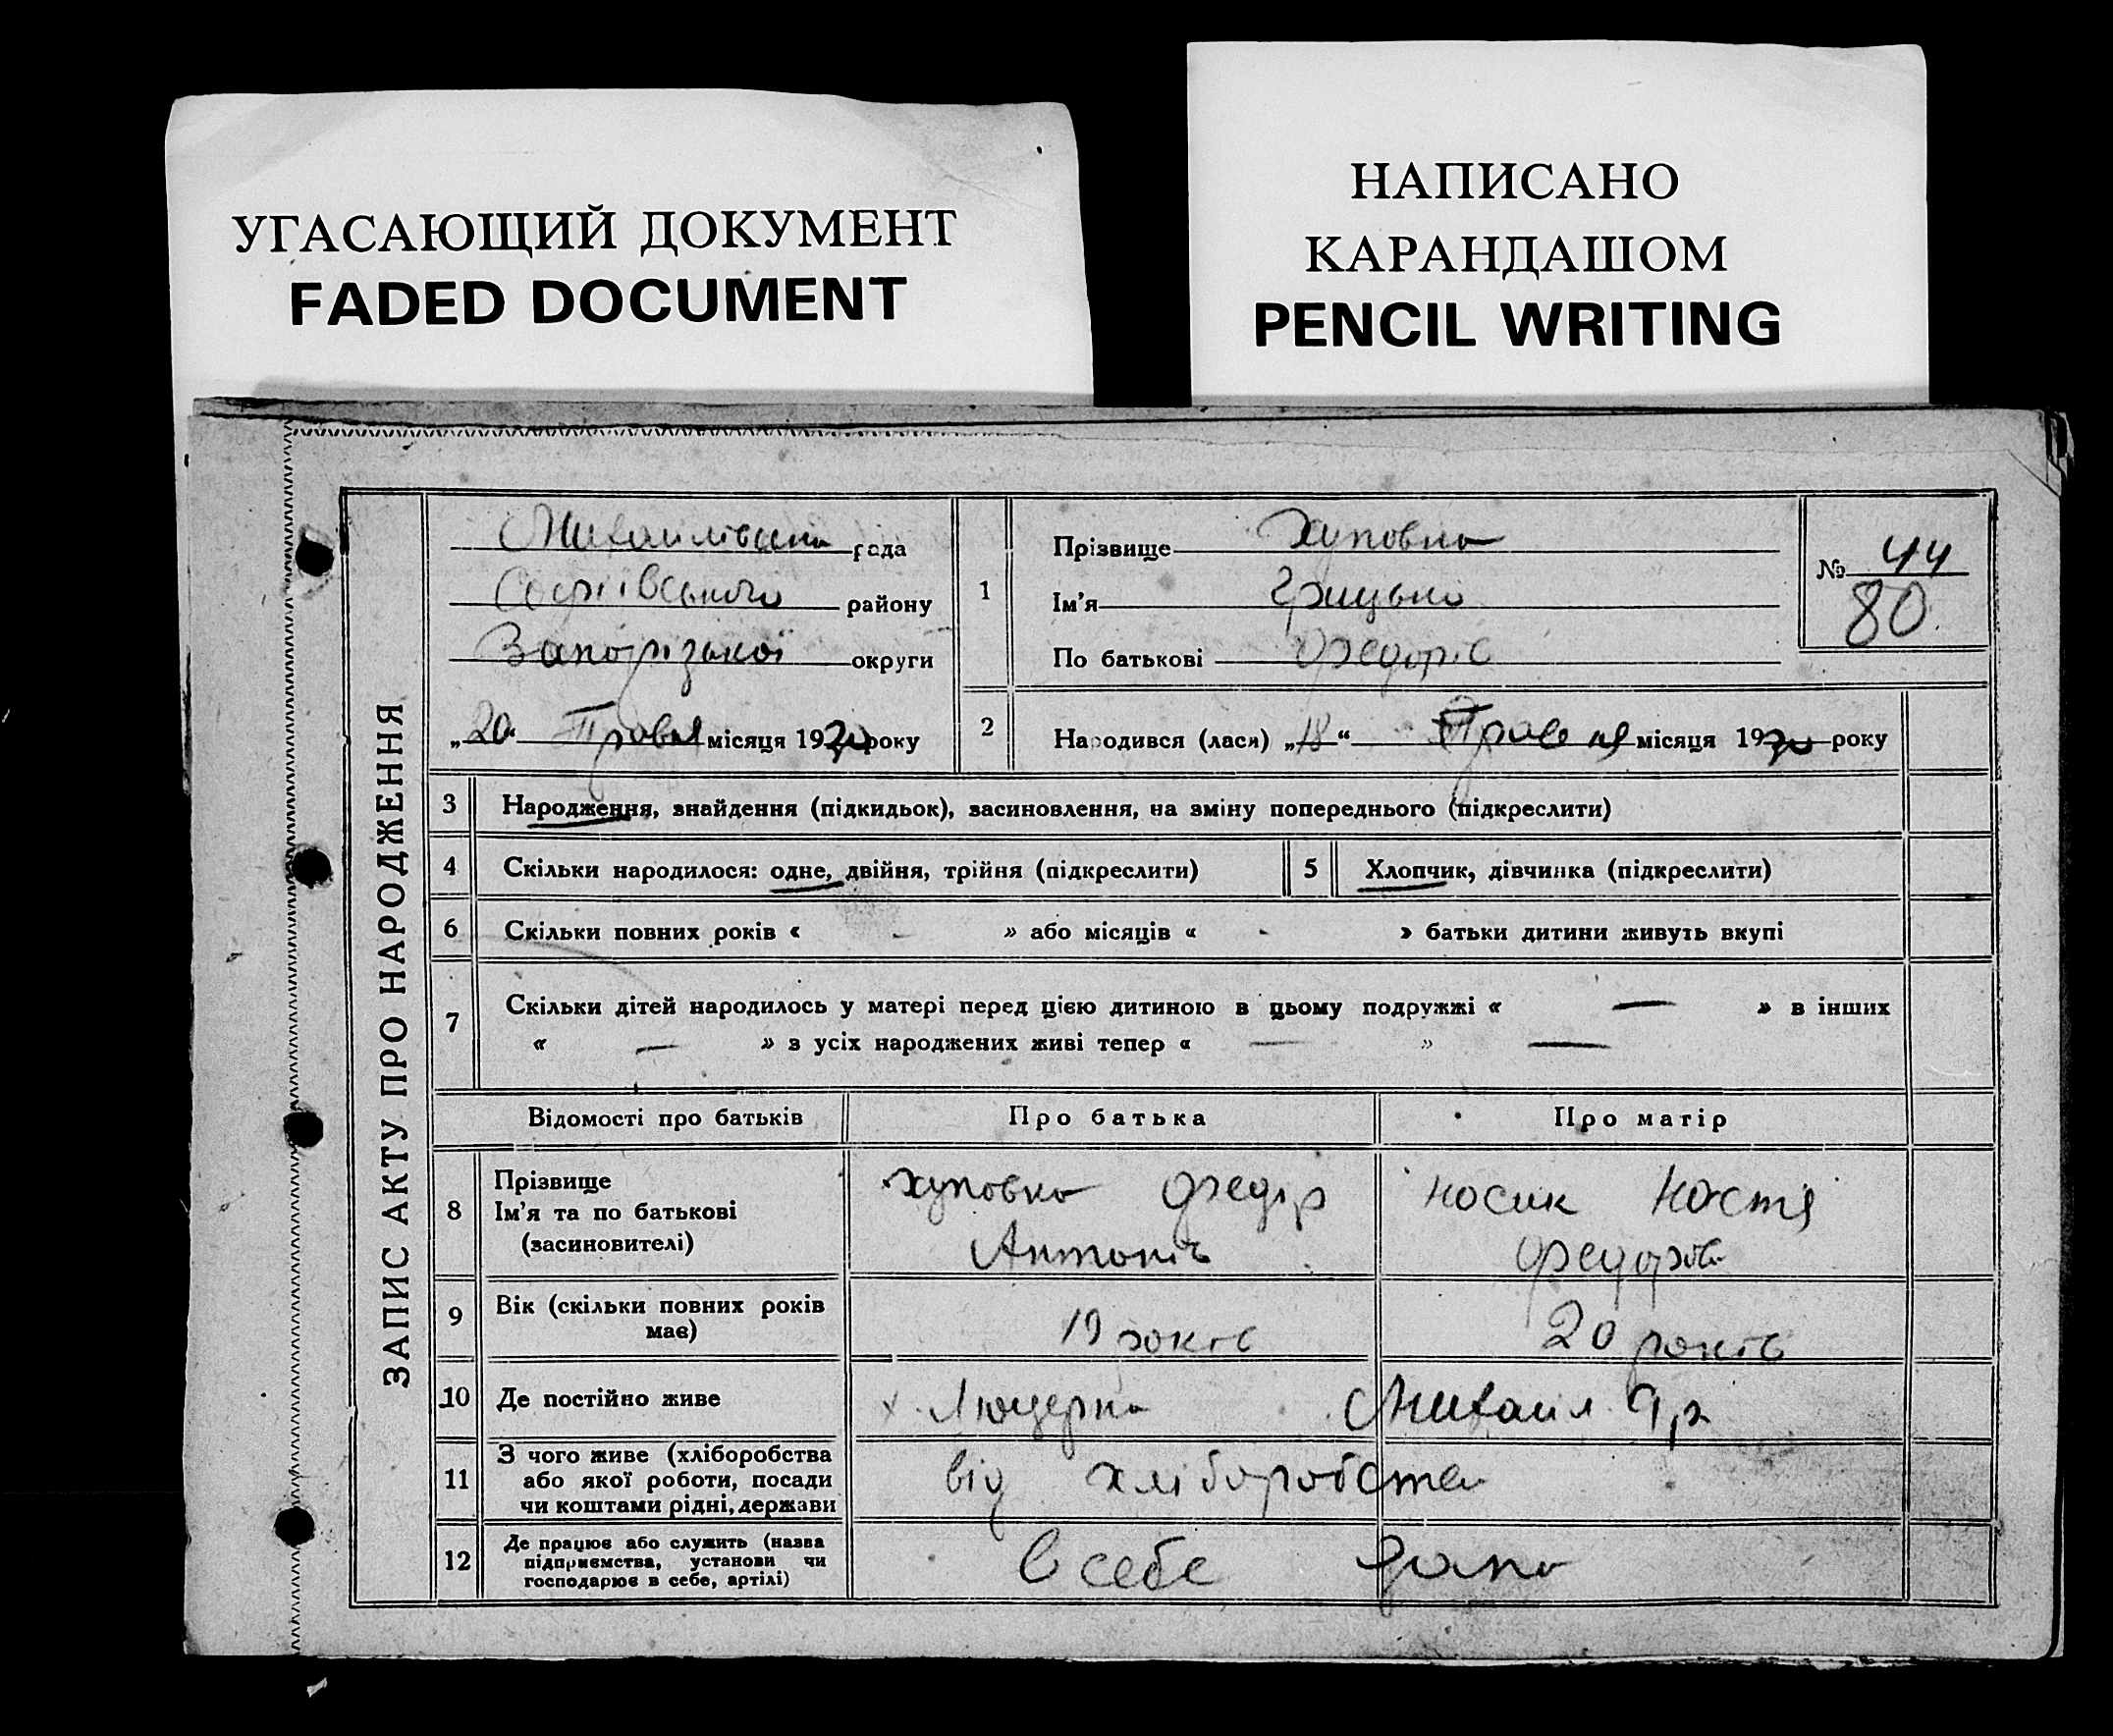 УГАСАЮЩИЙ ДОКУМЕНТ
FADED DOCUMENT
НАПИСАНО
КАРАНДАШОМ
PENCIL WRITING
ЗАПИС АКТУ ПРО НАРОДЖЕННЯ
Михайлівська рада
Софіївського району
Запорізької округи
„20“ Травня місяця 1930 року
1
Прізвище Хуповка
Ім'я Грицько
По батькові Федорів
№ 44
80
2 Народився (лася) „18“ Травня місяця 1930 року
3 Народження, знайдення (підкидьок), засиновлення, на зміну попереднього (підкреслити)
4 Скільки народилося: одне, двійня, трійня (підкреслити) 5 Хлопчик, дівчинка (підкреслити)
6 Скільки повних років « - » або місяців « - » батьки дитини живуть вкупі
7 Скільки дітей народилось у матері перед цією дитиною в цьому подружжі « — » в інших
« — » з усіх народжених живі тепер « — » —
Відомості про батьків Про батька Про матір
8 Прізвище
Ім'я та по батькові
(засиновителі)
Хуповка Федір
Антонів
Носик Настя
Федорів
9 Вік (скільки повних років
має)
19 років
20 років
10 Де постійно живе х. Люцерна Михайл.
11 З чого живе (хліборобства
або якої роботи, посади
чи коштами рідні, держави
від хліборобства
12 Де працює або служить (назва
підприємства, установи чи
господарює в себе, артілі)
в себе дома